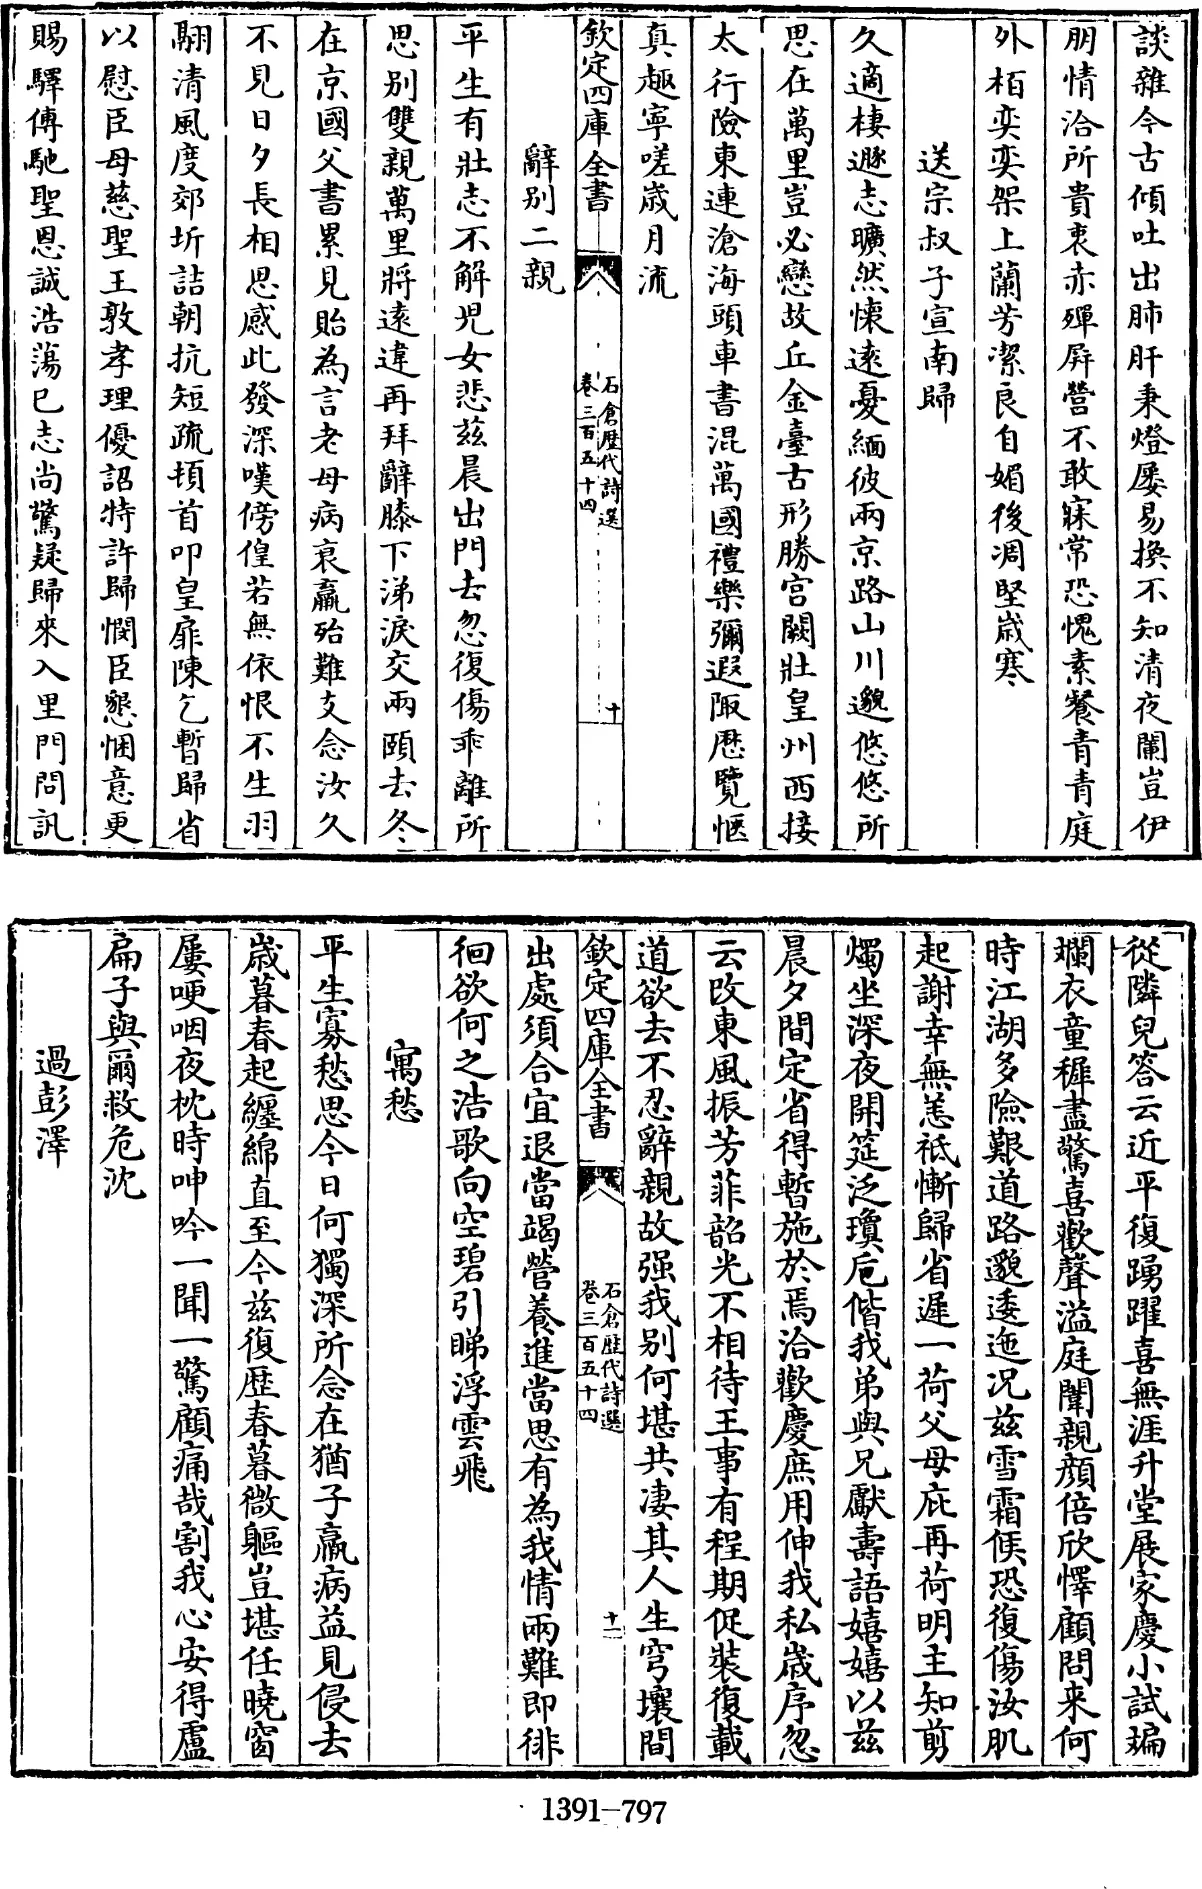 談雜今古傾吐出肺肝秉燈屢易換不知清夜闌豈伊
朋情洽所貴衷亦殫屏營不敢寐常恐愧素餐青青庭
外栢奕奕架上蘭芳潔良自媚後凋堅歲寒
送宗叔子宣南歸
久適棲遯志曠然懷遠憂緬彼兩京路山川邈悠悠所
思在萬里豈必戀故丘金臺古形勝宮闕壯皇州西接
太行險東連滄海頭車書混萬國禮樂彌遐陬歷覽愜
真趣寧嗟歲月流
欽定四庫全書
石倉歷代詩選
卷三百五十四
十
辭別二親
平生有壯志不解兒女悲茲晨出門去忽復傷乖離所
思別雙親萬里將遠違再拜辭膝下涕淚交兩頤去冬
在京國父書累見貽為言老母病衰羸殆難支念汝久
不見日夕長相思感此發深嘆傍偟若無依恨不生羽
翮清風度郊圻詰朝抗短疏頓首叩皇扉陳乞暫歸省
以慰臣母慈聖王敦孝理優詔特許歸憫臣懇悃意更
賜驛傳馳聖恩誠浩蕩已志尚驚疑歸來入里門問訊
從隣兒答云近平復踴躍喜無涯升堂展家慶小試斒
斕衣童穉盡驚喜歡聲溢庭闈親顏倍欣懌顧問來何
時江湖多險艱道路邈逶迤况茲雪霜候恐復傷汝肌
起謝幸無恙祗慚歸省遲一荷父母庇再荷明主知剪
燭坐深夜開筵泛瓊巵偕我弟與兄獻壽語嬉嬉以茲
晨夕間定省得暫施於焉洽歡慶庶用伸我私歲序忽
云改東風振芳菲韶光不相待王事有程期促裝復載
道欲去不忍辭親故强我別何堪共淒其人生穹壤間
欽定四庫全書
石倉歷代詩選
卷三百五十四
十一
出處須合宜退當竭營養進當思有為我情兩難即徘
徊欲何之浩歌向空碧引睇浮雲飛
寓愁
平生寡愁思今日何獨深所念在猶子羸病益見侵去
歲暮春起纏綿直至今茲復歷春暮微軀豈堪任曉窗
屢哽咽夜枕時呻吟一聞一驚顧痛哉割我心安得盧
扁子與爾救危沈
過彭澤
1391-797